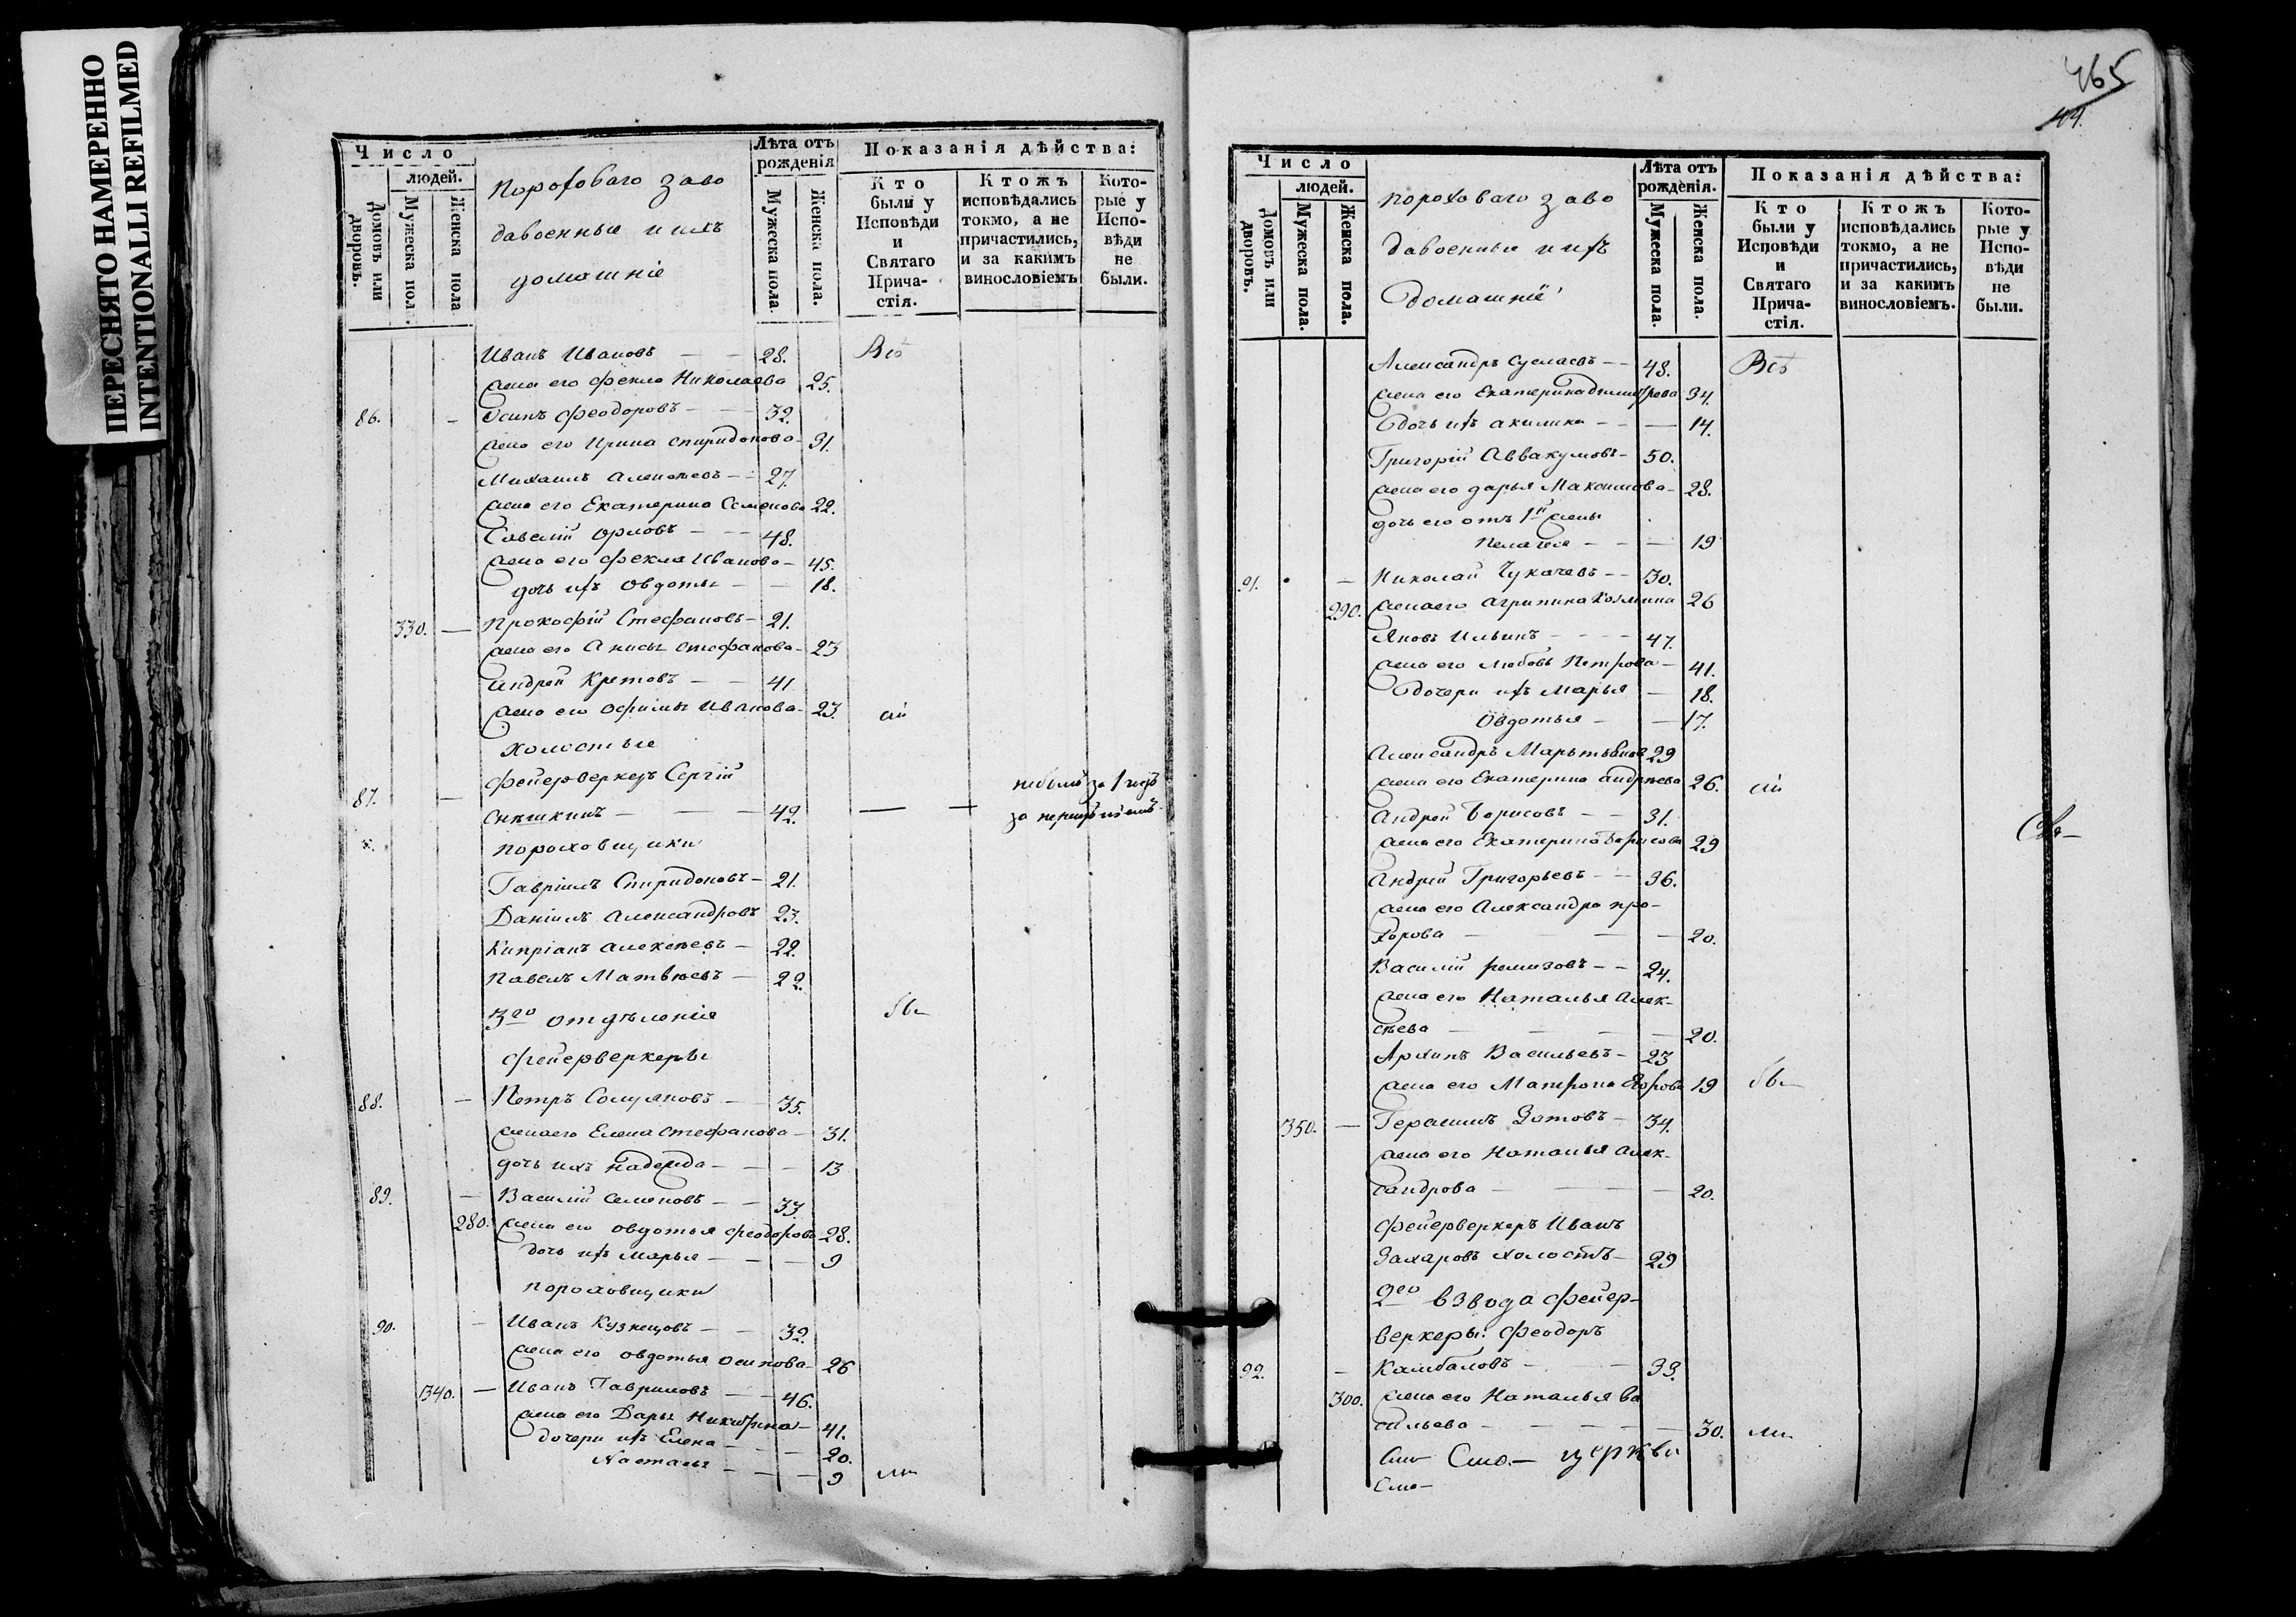 ПЕРЕСНЯТО НАМЕРЕННО
INTENTIONALLI REFILMED
Число
людей.
Домовъ или дворовъ.
Мужеска пол.
Женска пола
Пороховаго заво
да военные и ихъ
домашніе
Лѣта отъ рожденія
Мужеска пола.
Женска пола.
Показанія дѣйства:
Кто были у Исповѣди и Святаго Прича-стія.
Ктожъ исповѣдались токмо, а не причастились, и за какимъ винословіемъ
Кото-рые у Испо-вѣди не были.
Иванъ Ивановъ — — 28. Всѣ
жена его Фекла Николаева 25.
86. — Осипъ Феодоровъ — 32.
жена его Ирина Спиридонова — 31.
Михаилъ Алексѣевъ — 27.
жена его Екатерина Семенова 22.
Орловъ — — 48.
жена его Фекла Иванова — 45.
дочь ихъ Овдотья — — 18.
330. — Прокофій Стефановъ — 21.
жена его Анисья Стефанова — 23
Андрей Кретовъ — — 41
жена его Офимья Иванова — 23.
Холостые
Фейерверкеръ Сергій
87. — Снѣшкинъ — — 42. — —
небылъ за 1 годъ
за
Пороховщики
Гавріилъ Спиридоновъ — 21.
Даніилъ Александровъ 23.
Кипріанъ Алексѣевъ — 22.
Павелъ Матвѣевъ — 22.
3го отдѣленія
Фейерверкеры
88. — Петръ — 35.
жена его Елена Стефанова — 31.
дочь ихъ Надежда — — — 13
89. — Василій Семеновъ — — 33
280. жена его Овдотья Феодорова 28.
дочь ихъ Марья — — — 9
Пороховщики
90. — Иванъ Кузнецовъ — — 32.
жена его Овдотья Осипова — 26
340. — Иванъ Гавриловъ — — 46.
жена его Дарья Никитина — 41.
дочери ихъ Елена — — — 20.
Настасья — — — 9
465
44.
Число
людей.
Домовъ или дворовъ.
Мужеска пола.
Женска пола.
Пороховаго заво
да военные и ихъ
Домашніе
Лѣта отъ рожденія.
Мужеска пола.
Женска пола.
Показанія дѣйства:
Кто были у Исповѣди и Святаго Прича-стія.
Ктожъ исповѣдались токмо, а не причастились, и за какимъ винословіемъ.
Кото-рые у Испо-вѣди не были.
Александръ Суслаевъ — — 48. Всѣ
жена его Екатерина Димитрева 34.
дочь ихъ Акилина — — — 14.
Григорій Аввакумовъ — 50.
жена его Дарья Максимова — 28.
дочь его отъ 1й жены
Пелагея — — — 19
91. — Николай Чукачевъ — — 30.
290. жена его Агрипина Козмина 26
Яковъ Ильинъ — — — 47.
жена его Любовь Петрова — 41.
дочери ихъ Марья — 18.
Овдотья — — 17.
Александръ 29
жена его Екатерина Андрѣева 26.
Андрей Борисовъ — — 31.
жена его Екатерина Борисова 29
Андрей Григорьевъ — — 36.
жена его Александра Про-
хорова — — — 20.
Василій Ремизовъ — — 24.
жена его Наталья Алек-
сѣева — — — — 20.
Архипъ Васильевъ — 23
жена его Матрона Егорова 19
350. — Герасимъ Зотовъ — 34.
жена его Наталья Алек-
сандрова — — — 20.
Фейерверкеръ Иванъ
Захаровъ холостъ — 29
2го взвода фейер-
веркеры: Феодоръ
92. — Камбаловъ — — 33.
300. жена его Наталья Ва
сильева — — — — 30.
церкви